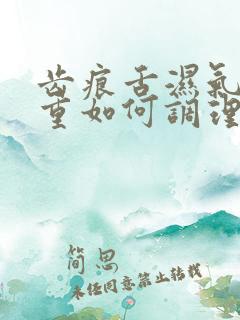 齿痕舌濕氣
重如何調理
简思
未经同意禁止转载